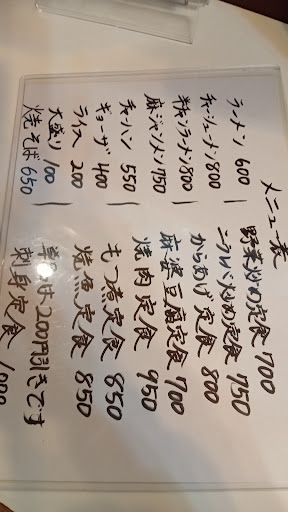 メニュー表
ラーメン 600
チャーシューメン 800
辛ネギラーメン 800
麻ジャンメン 750
チャーハン 550
ギョーザ 400
ライス 200
大盛り 100
焼そば 650
野菜炒め定食 700
ニラレバ炒め定食 750
からあげ定食 800
麻婆豆腐定食 700
焼肉定食 950
もつ煮定食 850
焼魚定食 850
単品は200円引きです
刺身定食